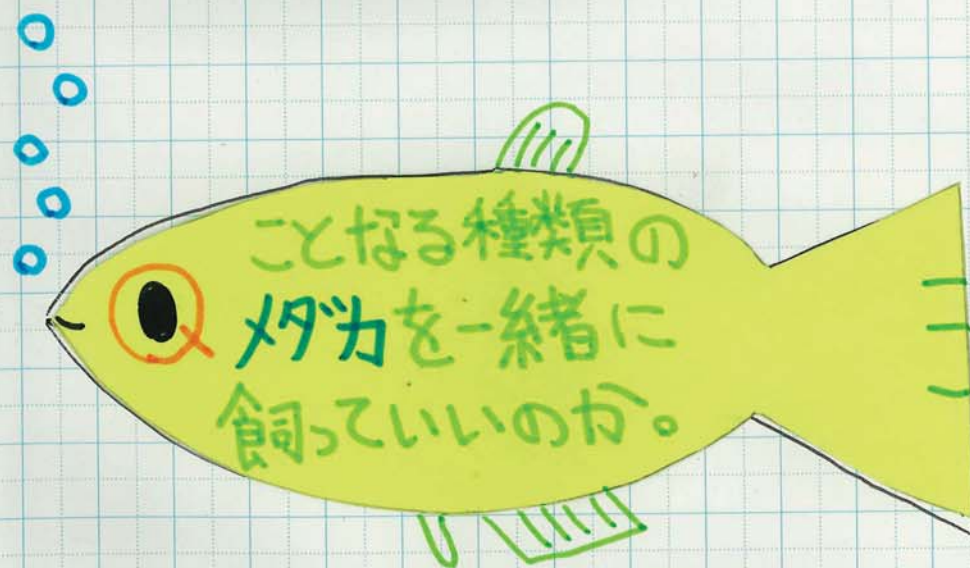 Q
ことなる種類の
メダカを一緒に
飼っていいのか。